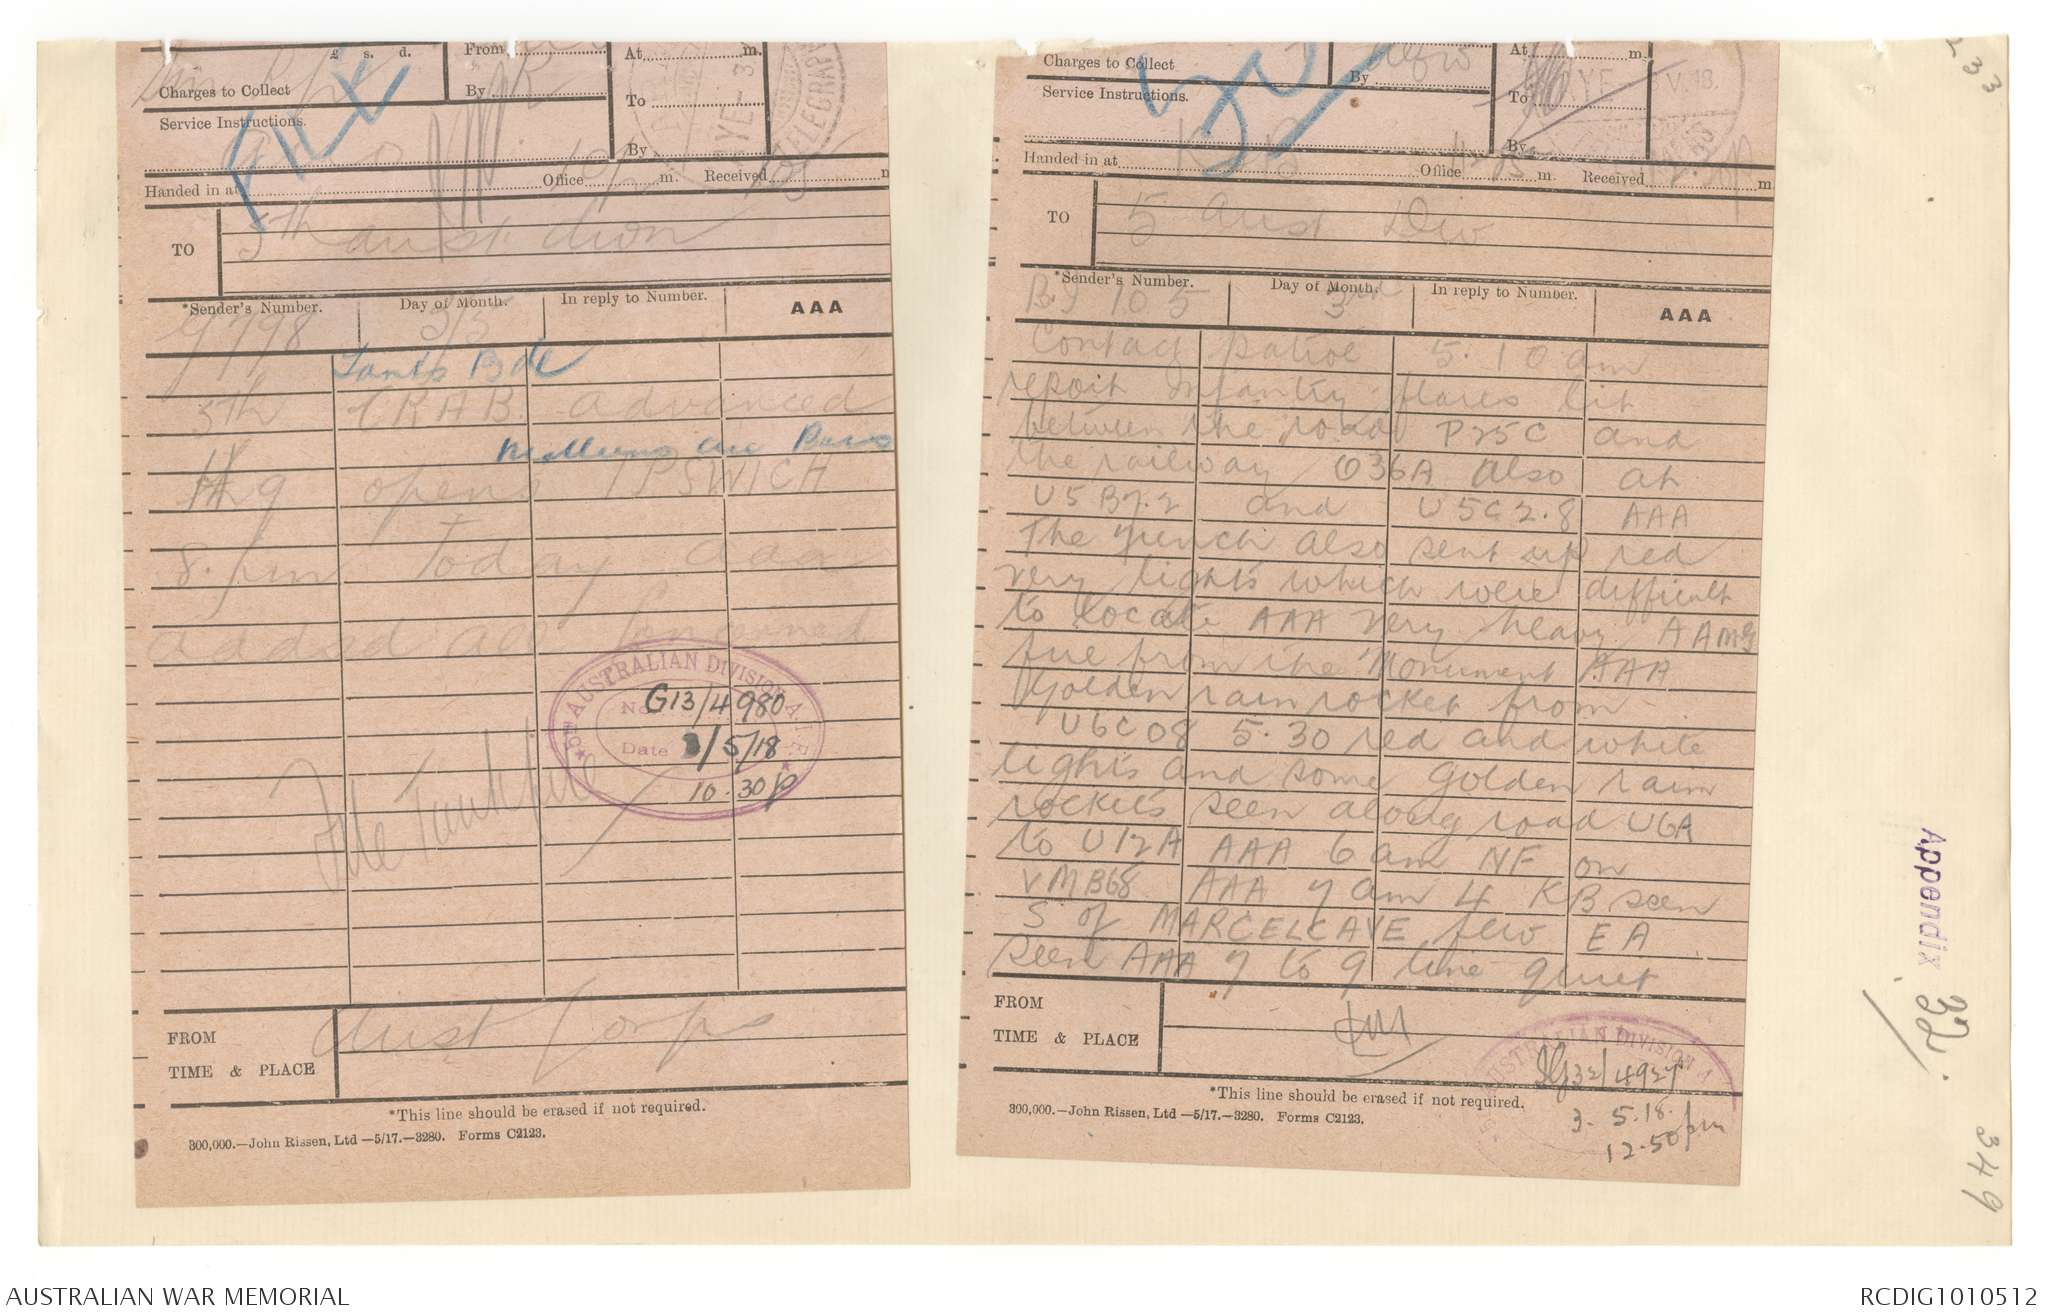 £ s. d.
From
At m.
Charges to Collect
By
To
Service Instructions.
By
FILE
Handed in at Office m. Received
TO
5th Aust divn
*Sender's Number. Day of Month. In reply to Number. AAA
G798 3/5
Tanks Bde
5th CRAB advanced
Molliens au Bois
Hq opens IPSWICH
8. pm Today aaa
Added all concerned
5TH AUSTRALIAN DIVISION A.I.F.
No. G13/4980
Date 3/5/18
10.30p
FROM
Aust Corps
TIME & PLACE
*This line should be erased if not required.
300,000.—John Rissen, Ltd —5/17.—3280. Forms C2123.
233
Charges to Collect
By
At m.
Service Instructions.
To
By
Handed in at Office m. Received m
TO
5 Aust Div
*Sender's Number. Day of Month. In reply to Number. AAA
BI 105 3rd
Contact patrol 5.10 am
report Infantry flares lit
between the road P25C and
the railway O36A also at
U5B7.2 and U5C2.8 AAA
The French also sent up red
very lights which were difficult
to locate AAA very heavy AAMG
fire from the Monument AAA
Golden rain rocket from
U6C08 5.30 red and white
lights and some golden rain
rockets seen along road U6A
to U12A AAA 6 am NF on
VMB68 AAA 7 am 4 KB seen
S of MARCELCAVE few EA
seen AAA 7 to 9 line quiet
FROM
TIME & PLACE
AUSTRALIAN DIVISION A
IG32/4927
3.5.18.
12.50pm
*This line should be erased if not required.
300,000.—John Rissen, Ltd —5/17.—3280. Forms C2123.
Appendix 32.
349
AUSTRALIAN WAR MEMORIAL
RCDIG1010512